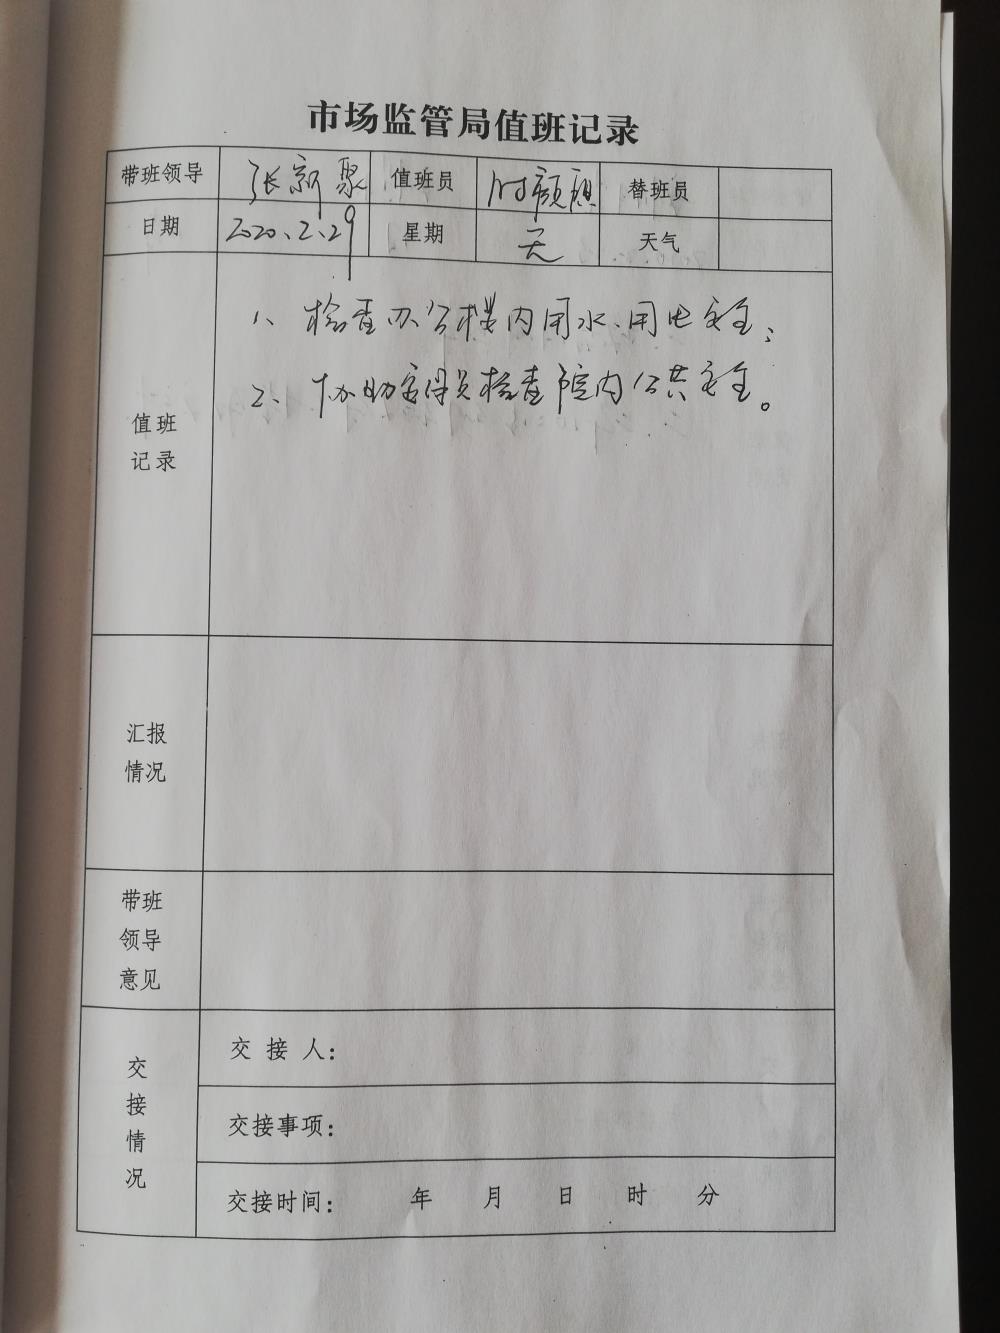 市场监管局值班记录
带班领导 张新聚 值班员 时颜 替班员
日期 2020、2、29 星期 天 天气
值班记录
1、检查办公楼内用水、用电安全；
2、协助安保员检查院内公共安全。
汇报情况
带班领导意见
交接情况
交接人：
交接事项：
交接时间： 年 月 日 时 分